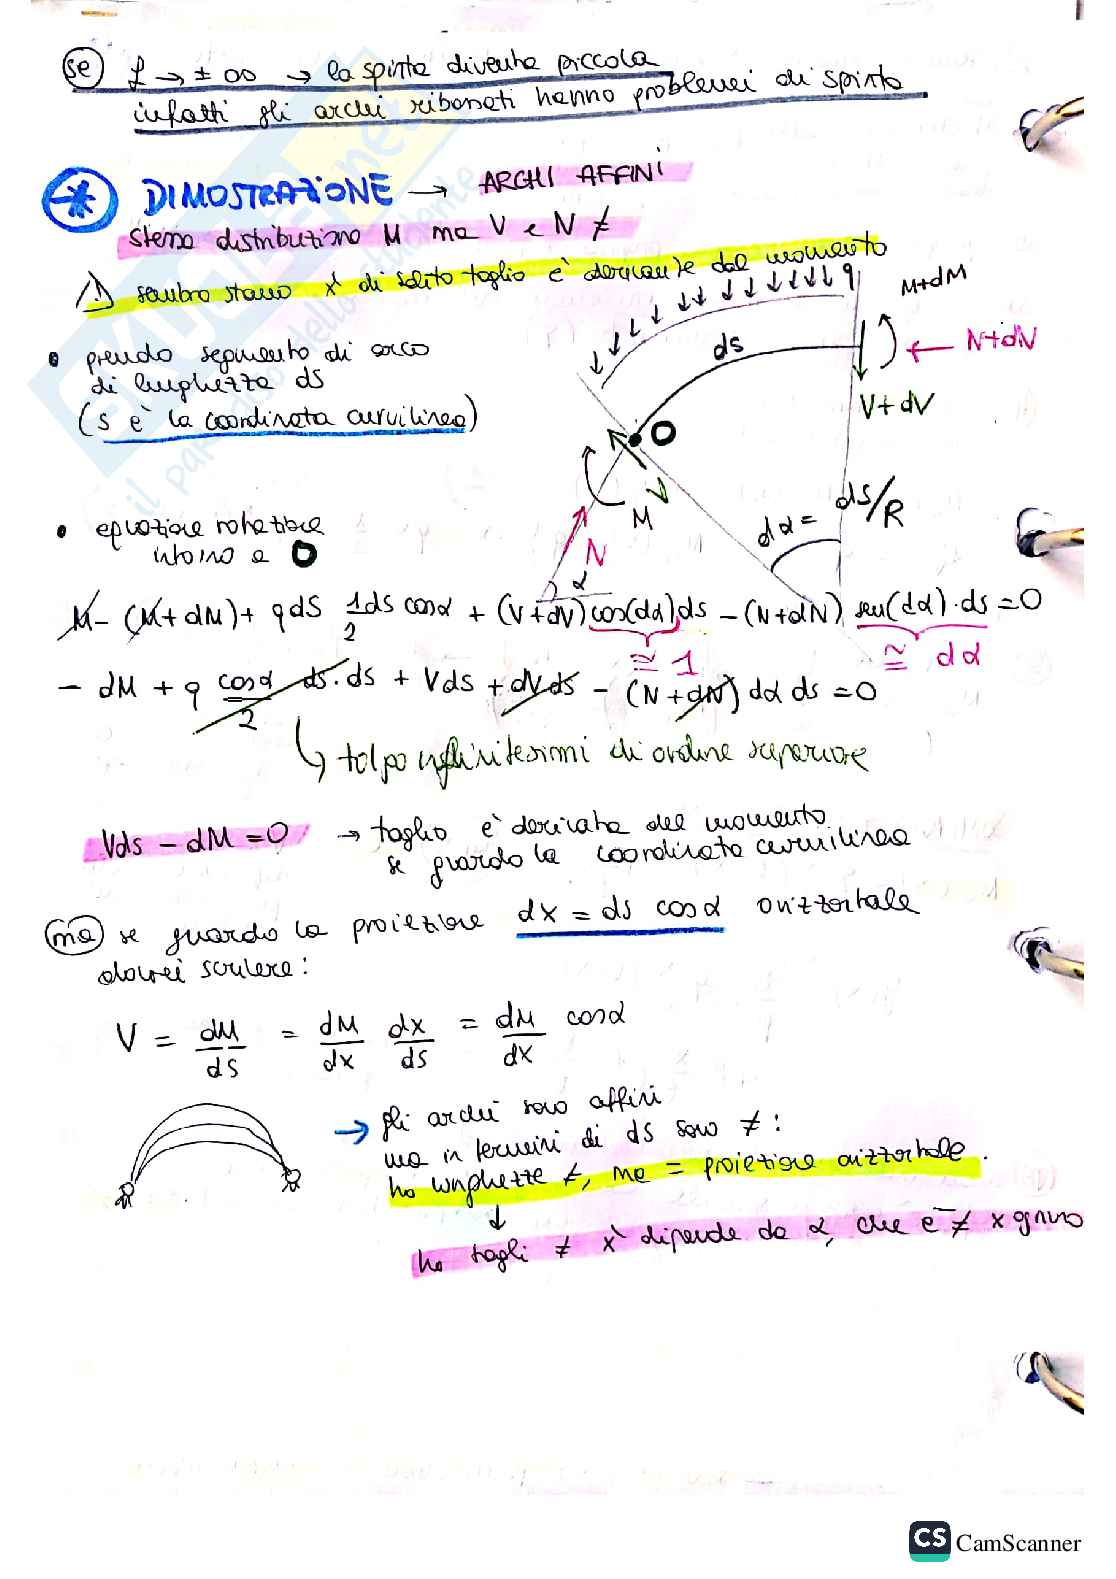 se f → ± ∞ → la spinta diventa piccola
infatti gli archi ribassati hanno problemi di spinta
* DIMOSTRAZIONE → ARCHI AFFINI
stessa distribuzione M ma V e N ≠
⚠ sembra strano x' di solito taglio è derivante dal momento
• prendo segmento di arco
di lunghezza ds
(s è la coordinata curvilinea)
q
M+dM
ds
N+dN
V+dV
O
M
N
α
dα = ds/R
• equazione rotazione
intorno a O
M - (M+dM) + q ds 1/2 ds cosα + (V+dV) cos(dα) ds - (N+dN) sen(dα) · ds = 0
≅ 1
≅ dα
- dM + q cosα/2 ds · ds + V ds + dV ds - (N + dN) dα ds = 0
↳ tolgo infinitesimi di ordine superiore
Vds - dM = 0 → taglio è derivata del momento
se guardo la coordinata curvilinea
ma se guardo la proiezione dx = ds cosα orizzontale
dovrei scrivere:
V = dM/ds = dM/dx dx/ds = dM/dx cosα
→ gli archi sono affini
ma in termini di ds sono ≠ :
ho lunghezze ≠, ma = proiezione orizzontale.
↓
ho tagli ≠ x' dipende da α, che è ≠ x ognuno
SKUOLA.net
il paradiso dello studente
CS CamScanner